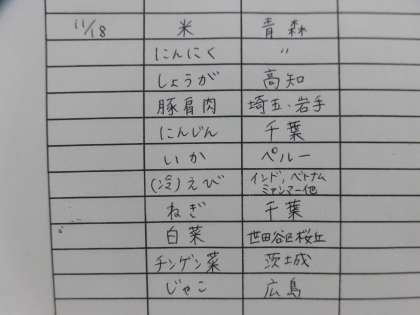 11/18 米 青森
にんにく 〃
しょうが 高知
豚肩肉 埼玉、岩手
にんじん 千葉
いか ペルー
(冷)えび インド、ベトナム
ミャンマー他
ねぎ 千葉
白菜 世田谷区桜丘
チンゲン菜 茨城
じゃこ 広島